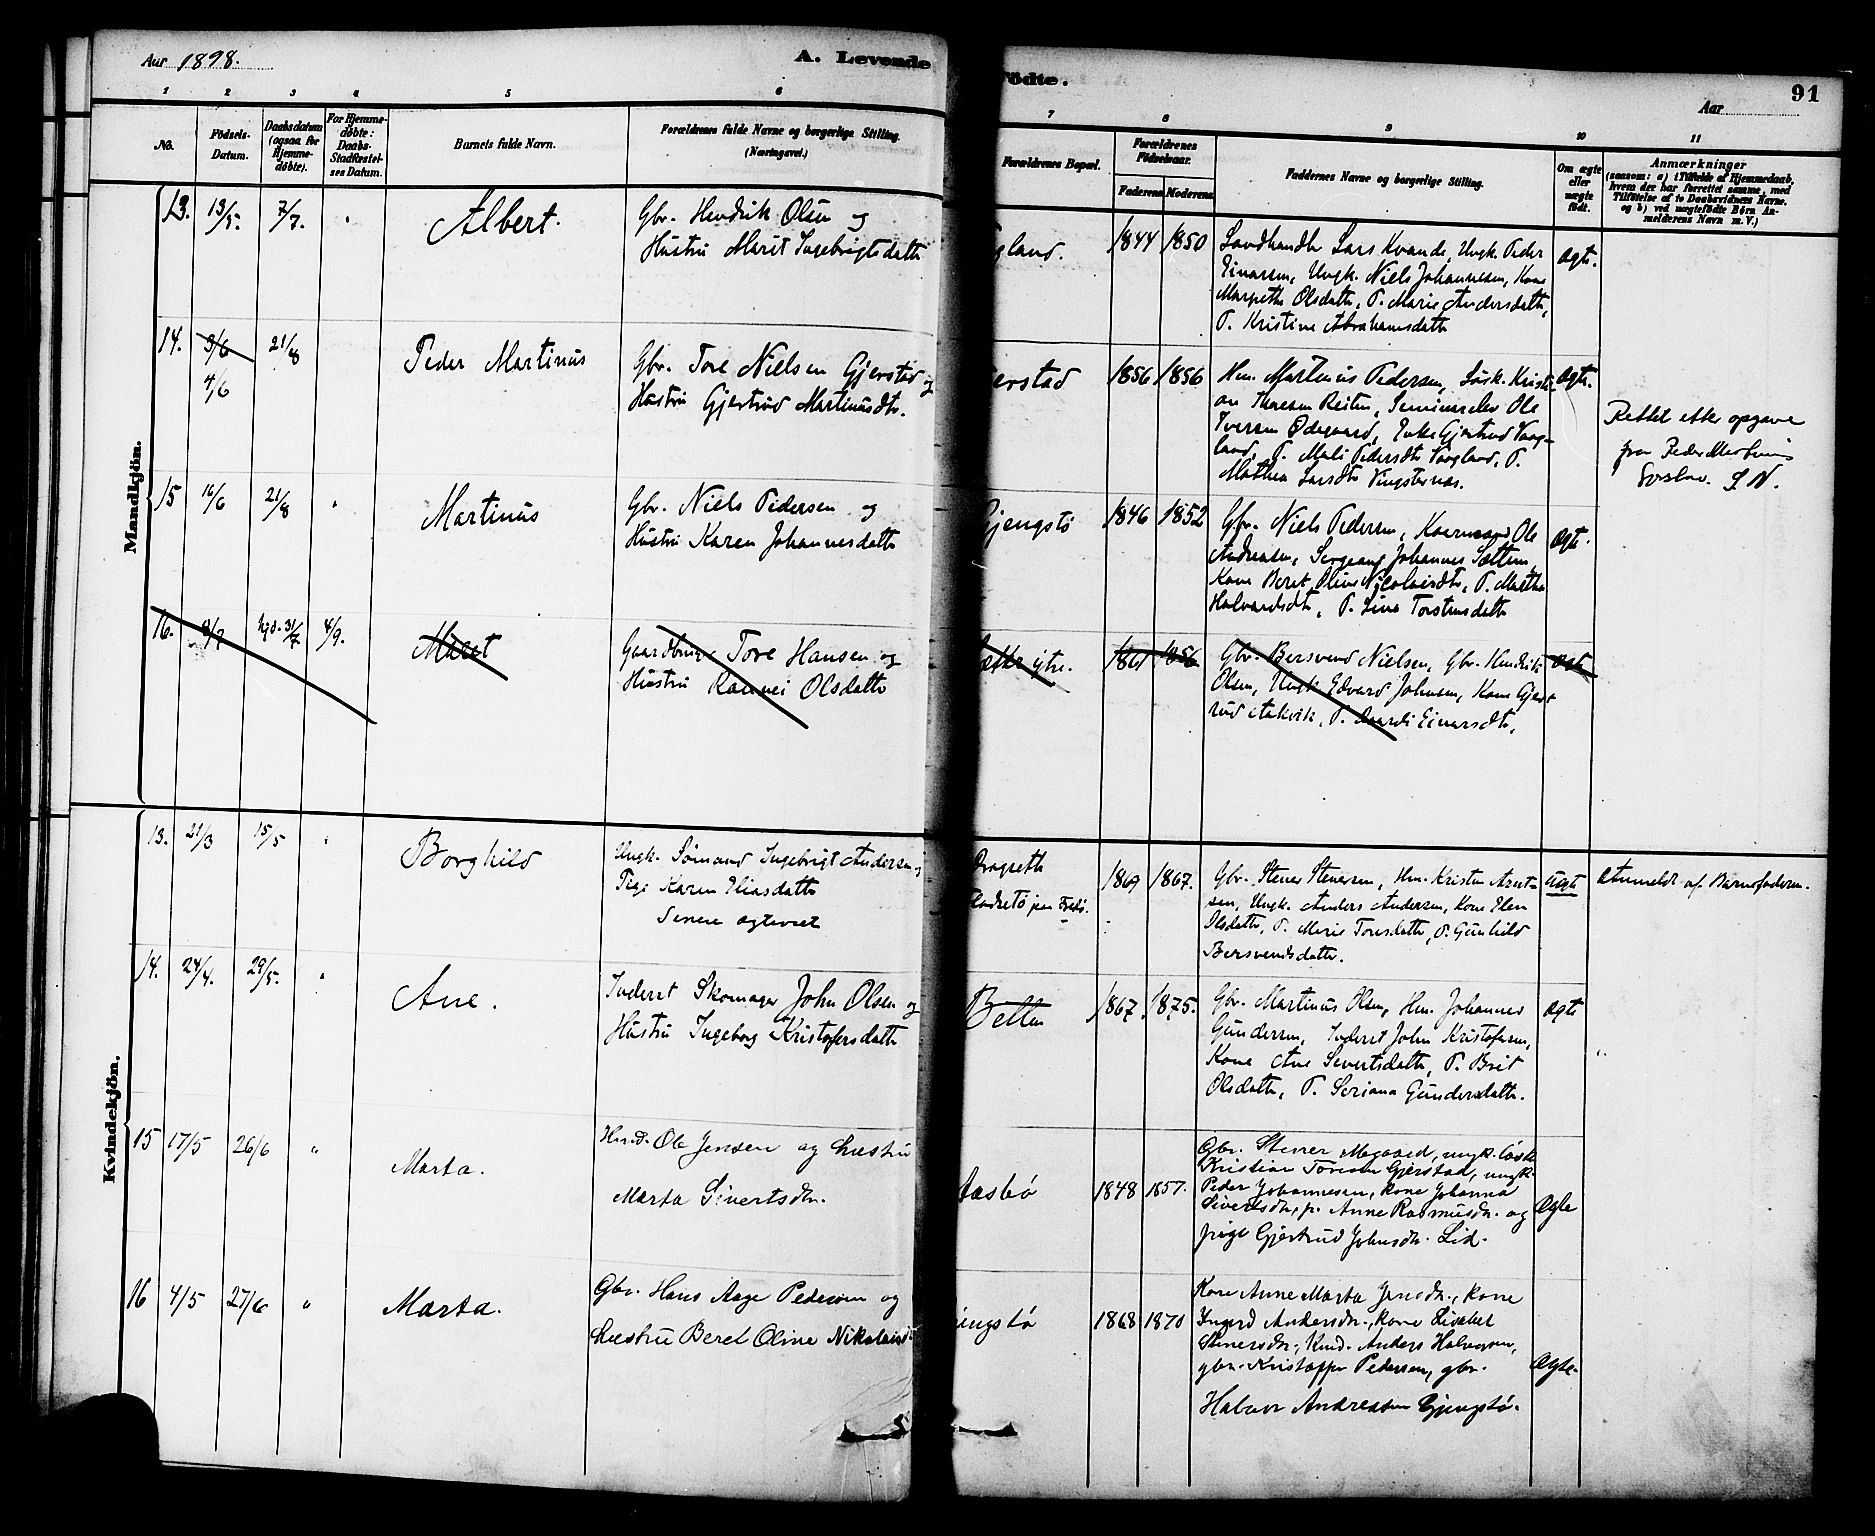 Aar 1898.
A. Levende
Födte.
91
Aar
1
2
3
4
5
6
7
8
9
10
11
No.
Födsels-
Datum.
Daabsdatum
(ogsaa for
Hjemme-
döbte).
For Hjemme-
döbte:
Daabs-
Stadfæstel-
ses Datum.
Barnets fulde Navn.
Forældrenes fulde Navne og borgerlige Stilling.
(Næringsvei.)
Forældrenes Bopæl.
Forældrenes
Födselsaar.
Faderens
Moderens
Faddernes Navne og borgerlige Stilling.
Om ægte
eller
uægte
födt.
Anmærkninger
(saasom: a) i Tilfælde af Hjemmedaab,
hvem der har forrettet samme, med
Tilföielse af to Daabsvidners Navne,
og b) ved uægtefödte Börn An-
melderens Navn m. V.)
Mandkjön.
13. 13/5. 7/7. "
Albert.
Gbr. Hendrik Olsen og
Hustru Marit Ingebrigtsdatter
gland.
1844 1850
Landhandler Lars Kvande, Ungk. Peder
Einarsen, Ungk. Niels Johannesen, Kone
Margrethe Olsdatter, P. Marie Andersdatter,
P. Kristine Abrahamsdatter
ægte.
14. 3/6
4/6
21/8
Peder Martinus
Gbr. Tore Nielsen Gjerstad og
Hustru Gjertrud Martinusdtr.
erstad
1856 1856
Hm. Martinus Pedersen, Løsk. Kristi-
an Thoresen Reiten, Seminarelev Ole
Iversen Ødegaard, Enke Gjertrud Vaag-
land, P. Mali Pedersdtr Vaagland, P.
Mathea Larsdtr Vingsternes.
ægte.
Rettet etter opgave
fra Peder Martinus
S. N.
15 16/6 21/8 "
Martinus
Gbr. Niels Pedersen og
Hustru Karen Johannesdatter
Gjengstø
1846 1852
Gbr. Niels Pedersen, Ole
Andreasen, Sergeang Johannes Sættem,
Kone Beret Oline Nikolaisdtr, P. Martha
Halvardsdtr, P. Lina Torstensdatter
ægte.
16. 8/7 hjd. 31/7 4/9.
Marit
Gaardbruger Tore Hansen og
Hustru Rannei Olsdatter
ytre.
1861 1856
Gbr. Bersvend Nielsen, Gbr. Hendrik
Olsen, Ungk. Edvard Johnsen, Kone Gjert-
rud Aakvik, P. Einarsdtr,
ægte
Kvindekjön.
13. 21/3 15/5 "
Borghild
Ungk. Sømand Ingebrigt Andersen og
Pige Karen Eliasdatter
Senere ægteviet
Dragsette
1869 1867.
Gbr. Stener Stenersen, Hm. Kristen Aret-
sen, Ungk. Anders Andersen, Kone Elen
Olsdatter, P. Marie Toresdatter, P. Gunhild
Bersvendsdatter.
Uægte
Anmeldt af Barnefaderen.
14. 24/4. 29/5. "
Ane.
Inderst Skomager John Olsen og
Hustru Ingeborg Kristofersdatter
Betten
1867. 1875.
Gbr. Martinus Olsen, Hm. Johannes
Gundersen, Inderst John Kristofersen,
Kone Ane Sivertsdatter, P. Brit
Olsdatter, P. Seriana Gundersdatter.
ægte
15 17/5 26/6 "
Marta.
Hmd. Ole Jensen og hustru
Marta Sivertsdtr.
Aasbø
1848 1857.
Gbr. Stener Mogaard, ungk. løsk.
Kristian Toresen Gjerstad, ungk.
Peder Johannesen, kone Johanna
Sivertsdtr, p. Anne Rasmusdtr. og
pige Gjertrud Johnsdtr. Lid.
Ægte
16 4/5 27/6 "
Marta.
Gbr. Hans Aage Pedersen og
hustru Beret Oline Nikolaisd
engstø
1868 1870
Kone Anne Marta Jensdtr., kone
Ingerd Andersdtr., kone Lisabet
Stenersdtr., Anders Halvorsen,
gbr. Kristoffer Pedersen, gbr.
Halvor Andreasen Gjengstø.
Ægte.